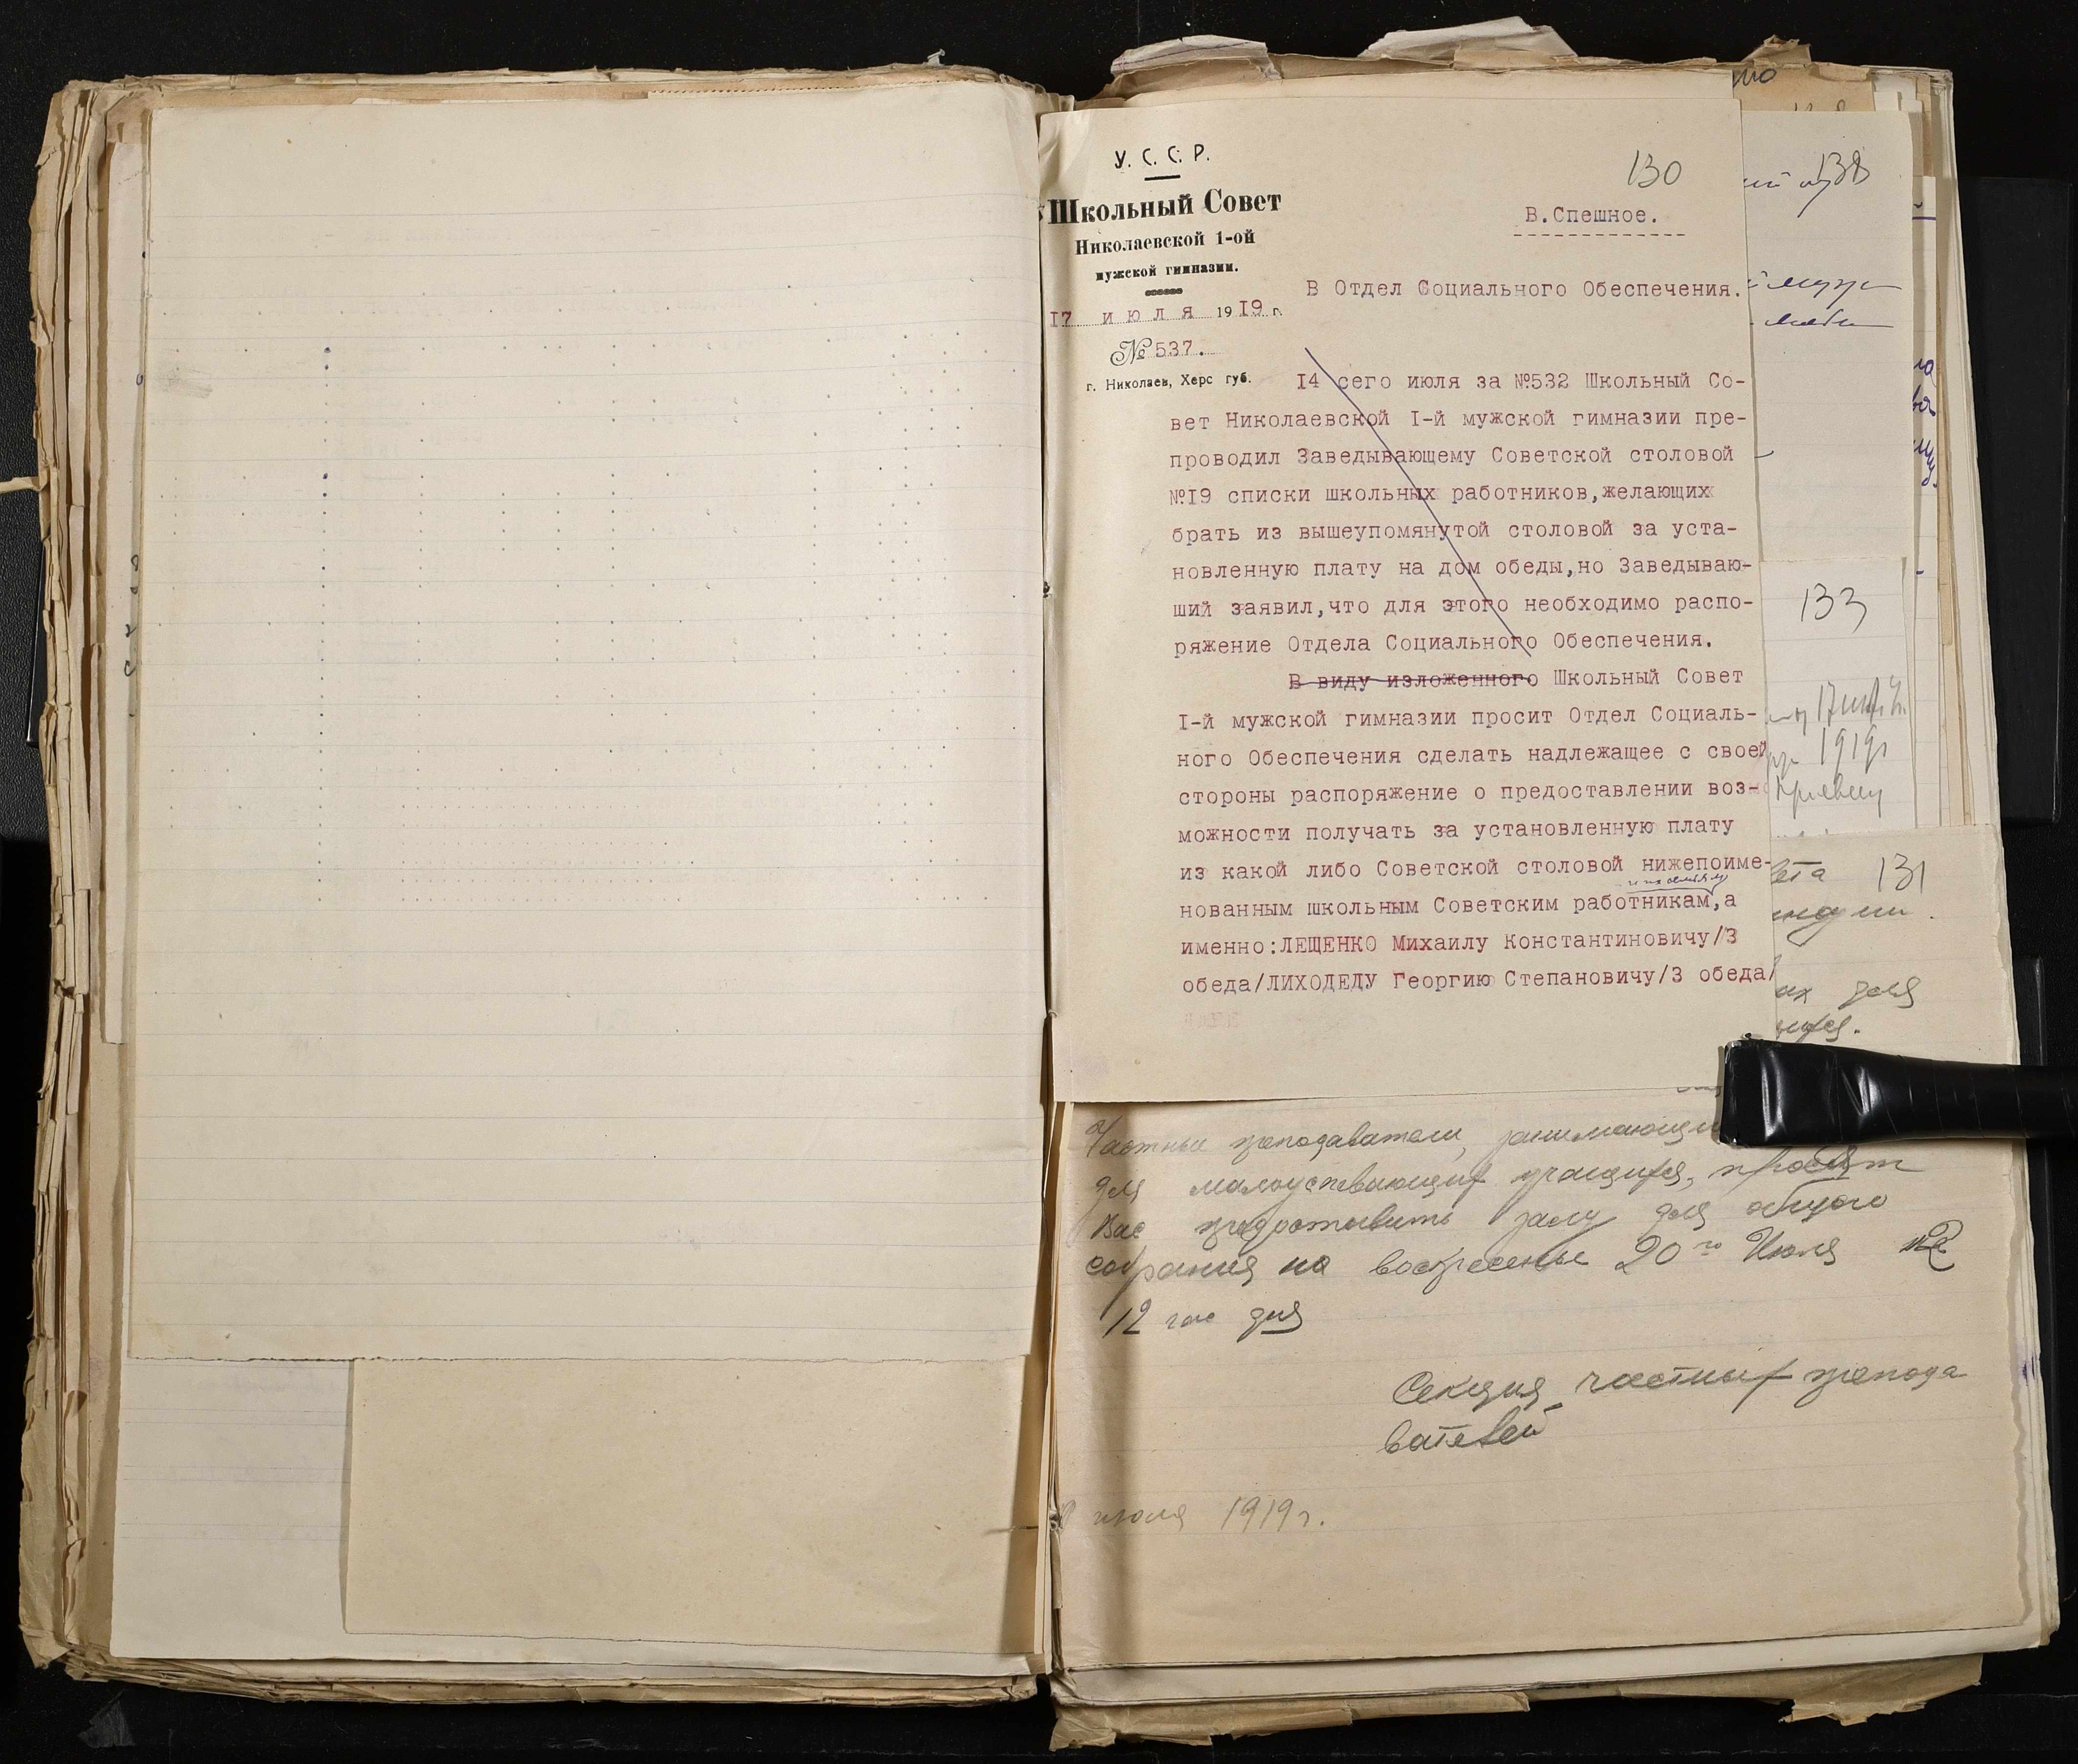 У. С. С. Р.
Школьный Совет
Николаевской 1-ой
мужской гимназии.
17 июля 1919 г.
№ 537.
г. Николаев, Херс губ.
130
В.Спешное.
В Отдел Социального Обеспечения.
14 сего июля за №532 Школьный Со-
вет Николаевской I-й мужской гимназии пре-
проводил Заведывающему Советской столовой
№I9 списки школьных работников,желающих
брать из вышеупомянутой столовой за уста-
новленную плату на дом обеды,но Заведываю-
ший заявил,что для этого необходимо распо-
ряжение Отдела Социального Обеспечения.
В виду изложенного Школьный Совет
I-й мужской гимназии просит Отдел Социаль-
ного Обеспечения сделать надлежащее с своей
стороны распоряжение о предоставлении воз-
можности получать за установленную плату
из какой либо Советской столовой нижепоиме-
нованным школьным Советским работникам,а
именно:ЛЕЩЕНКО Михаилу Константиновичу/3
обеда/ЛИХОДЕДУ Георгию Степановичу/3 обеда/
138
133
17
1919
131
для
Частные преподаватели,
для малоуспевающих учащихся, просят
Вас предоставить залу для общего
собрания на воскресенье 20го Июля
12 час дня
Секция частных препода
вателей
июля 1919 г.